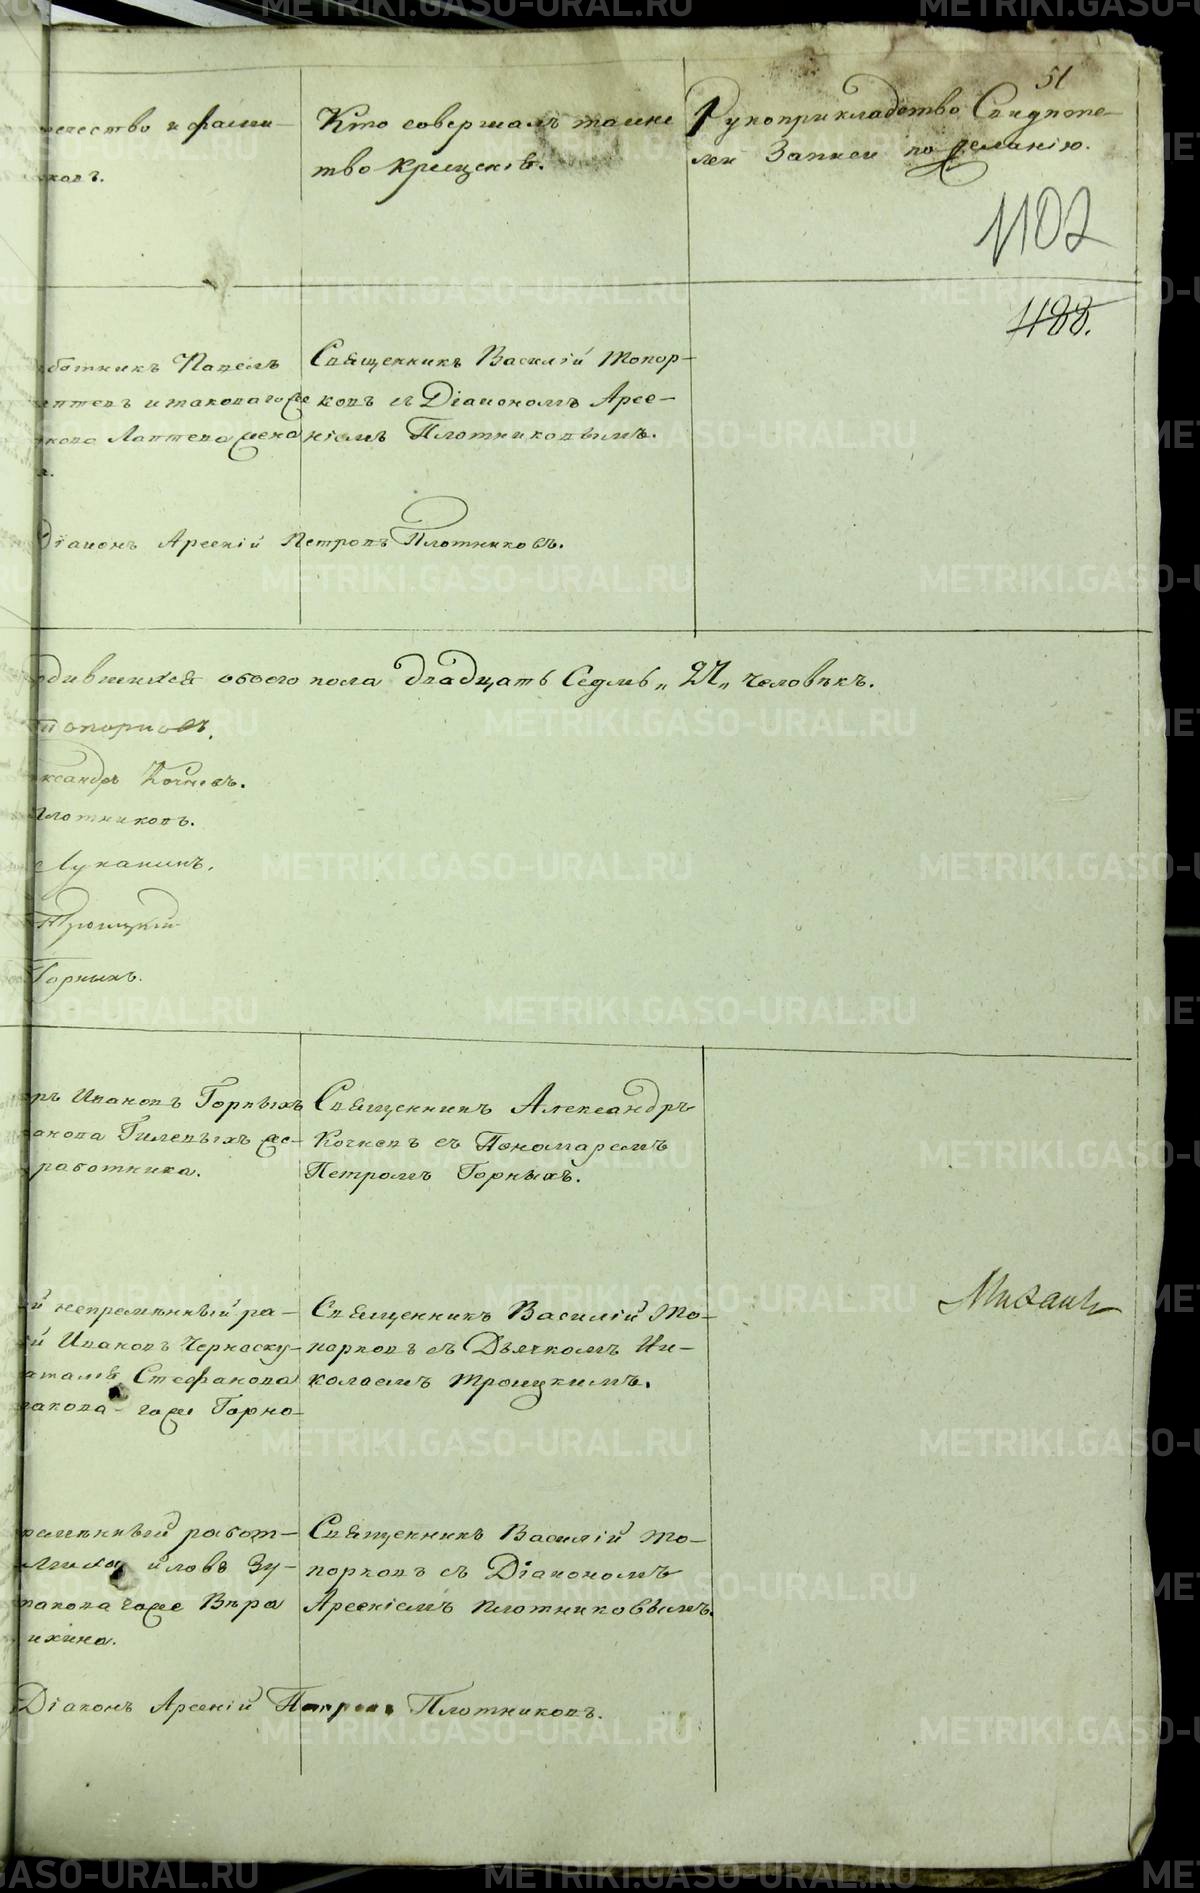 51
отчество и фами-
ковъ.
Кто совершалъ таинс
тво крещенія.
Рукоприкладство Свидѣте-
лей Записи по желанію.
1102
1188.
ботникъ Павелъ
аптевъ и таковагоже
кова Лаптева жена
Священникъ Василій Топор-
ковъ съ Діакономъ Арсе-
ніемъ Плотниковымъ.
Діаконъ Арсеній Петровъ Плотниковъ.
одившихся обоего пола двадцать Седмь „27„ человѣкъ.
Топорковъ.
ксандръ Кочневъ.
Плотниковъ.
Луканинъ.
Троицкій
Горныхъ.
ръ Ивановъ Горныхъ
анова Гилевыхъ же-
работника.
Священникъ Александръ
Кочневъ съ Пономаремъ
Петромъ Горныхъ.
й непремѣнный ра-
ій Ивановъ Черноску-
аталія Стефанова
такова-гоже Горно-
Священникъ Василій То-
порковъ съ Дьячкомъ Ни-
колаемъ Троицкимъ.
Михаилъ
ремѣнный работ-
никъ Михайловъ Зу-
таковагоже Вѣра
ихина.
Священникъ Василій То-
порковъ съ Діакономъ
Арсеніемъ Плотниковымъ.
Діаконъ Арсеній Петровъ Плотниковъ.
METRIKI.GASO-URAL.RU